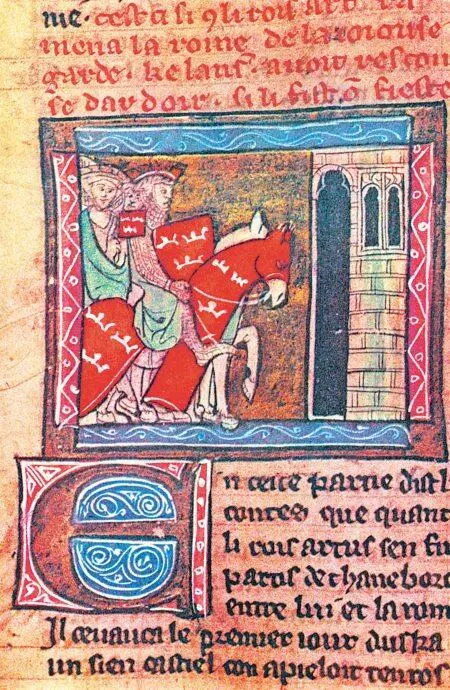 me. cest ci si q̃ li rois art. en
mena la roine de la ioiouse
garde. ke lans. auoit rescou
se dardoir. si li fist õ fieste
n ceste partie dist l
contes que quant
li rois artus sen fu
partis de thaneborc
entre lui et la roin
Il ceuauca le premier iour dusca
un sien castiel con apieloit tentos